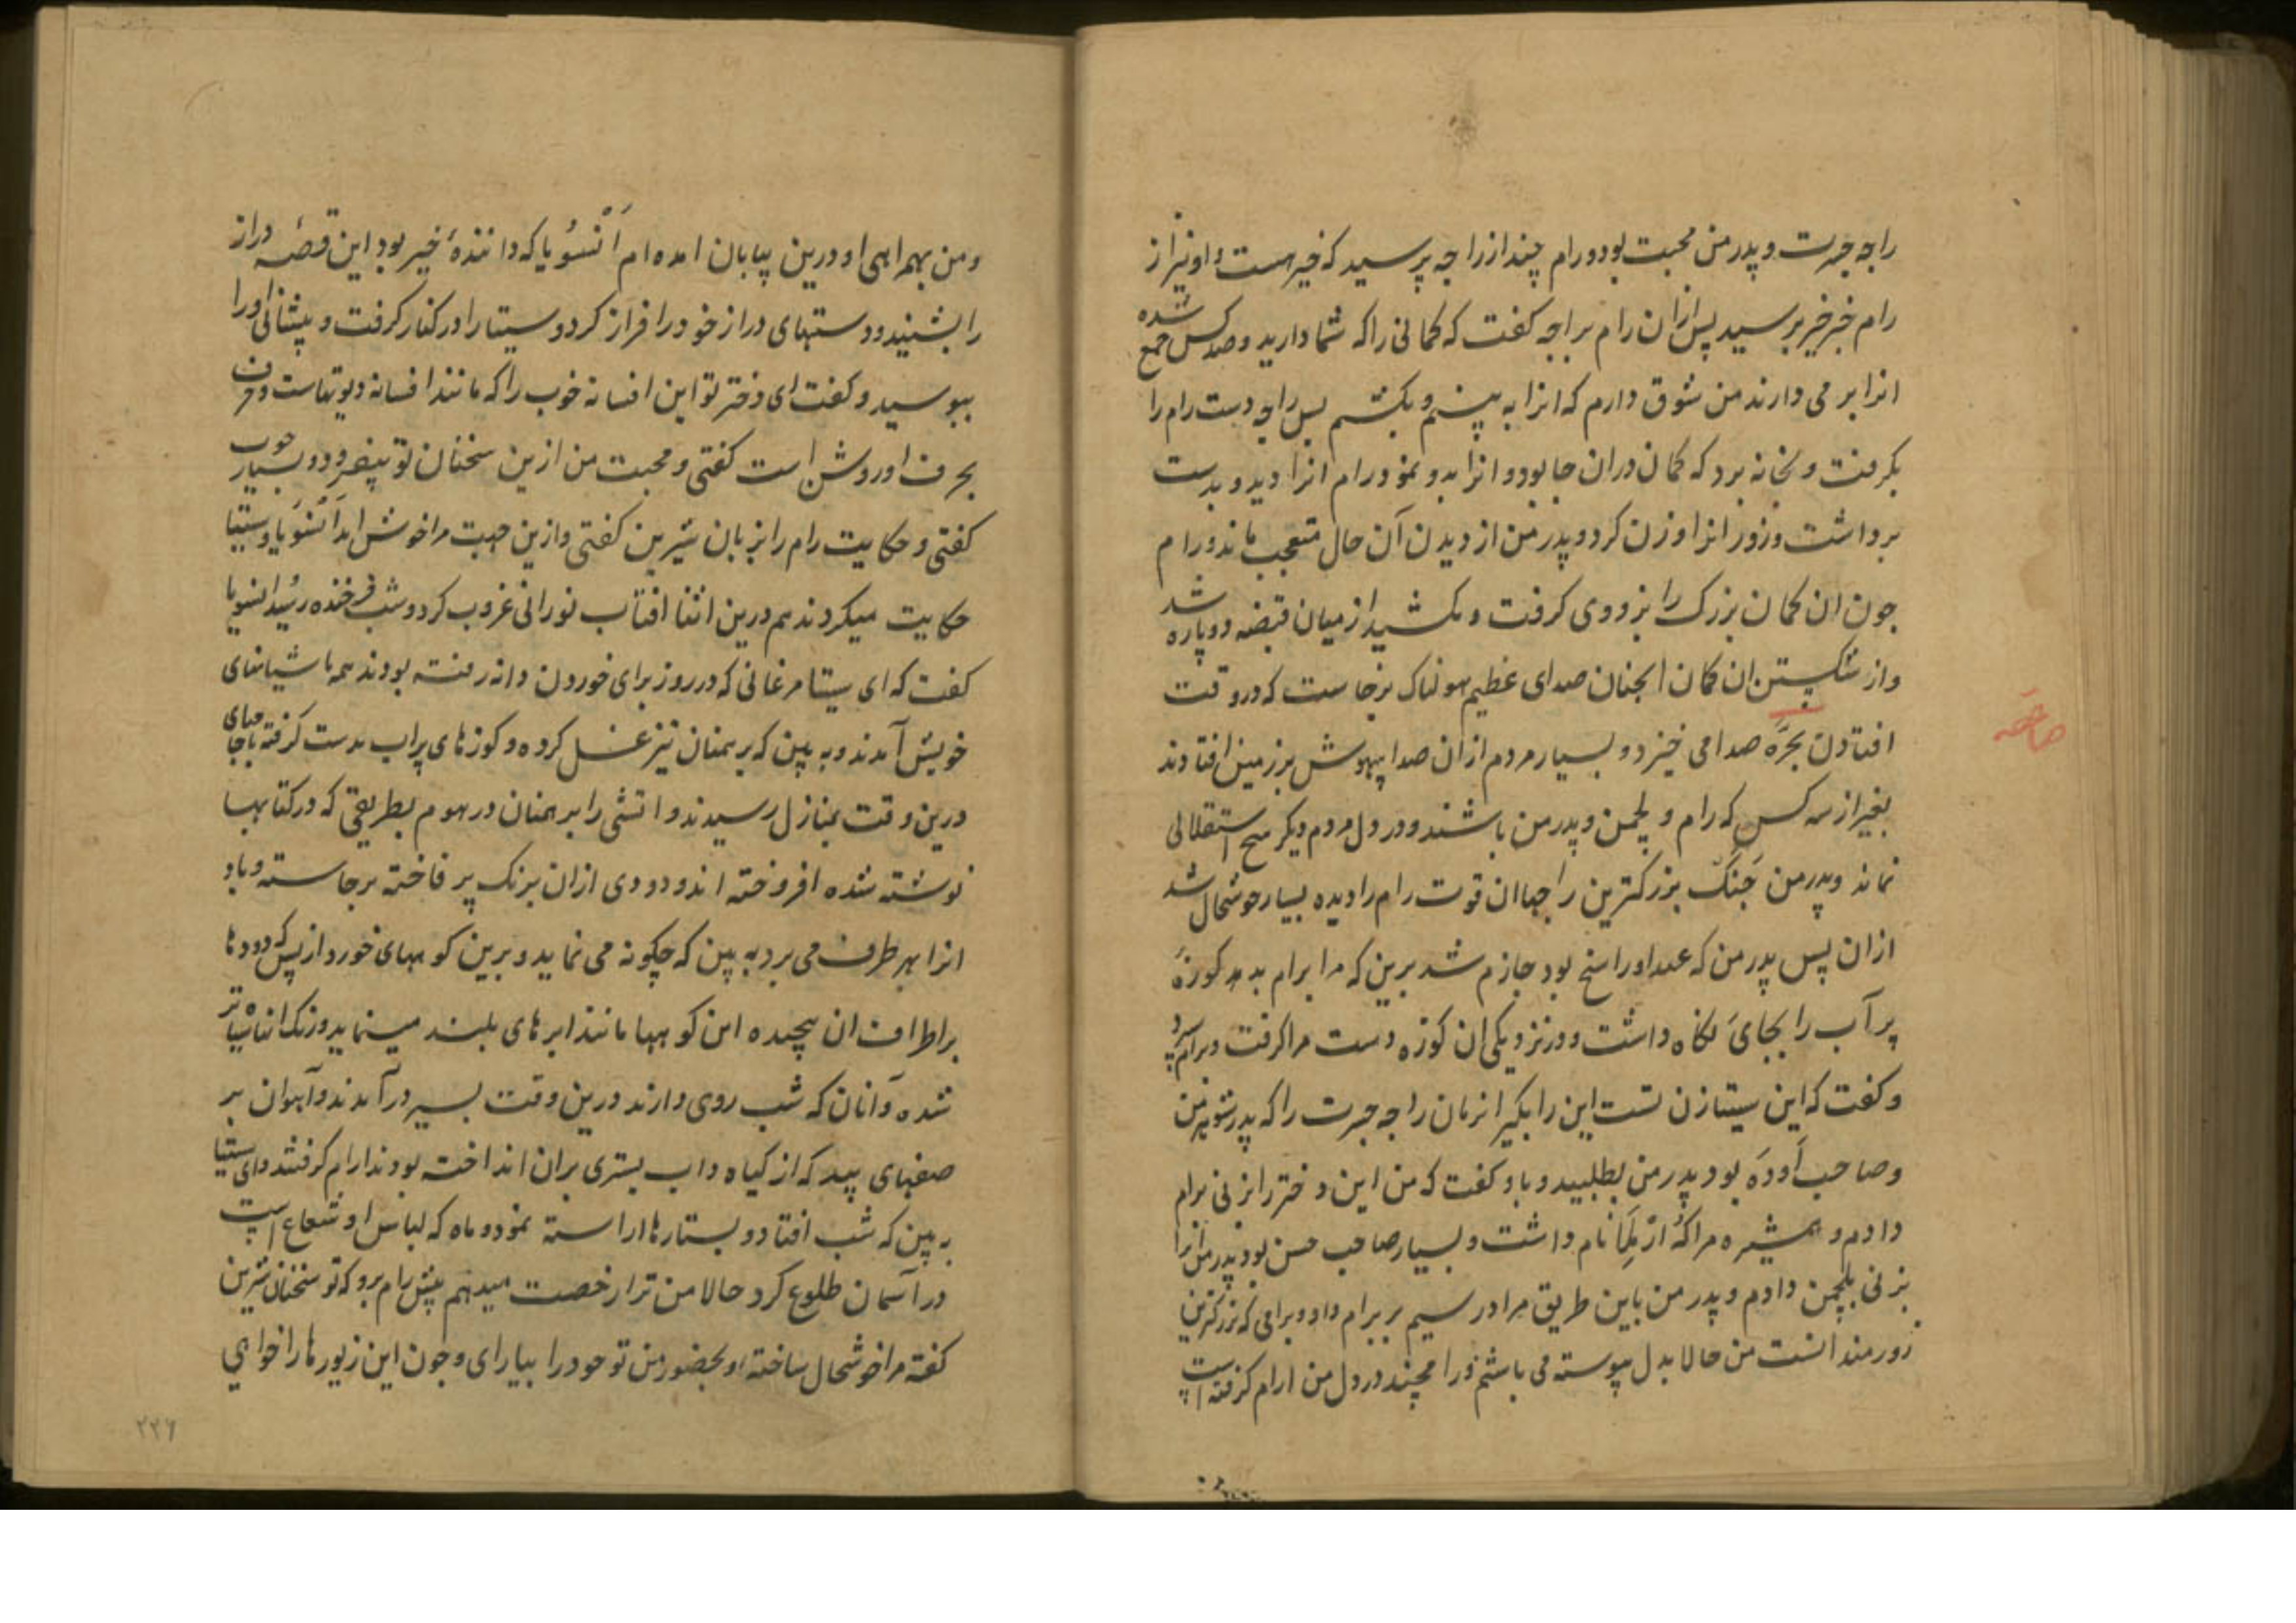 راجه جسرت و پدر من محبت بود و رام چند از راجه پرسید که خیر هست و او نیز از
رام خبر خیر پرسید پس ازان رام براجه کفت که کمانی را که شما دارید و صد کس جمع شده
انرا بر می دارند من شوق دارم که انرا به بینم و بکشم پس راجه دست رام را
بکرفت و بخانه برد که کمان دران جا بود و انرا بدو نمود رام انرا دید و بدست
برداشت و زور انرا وزن کرد و پدر من از دیدن آن حال متعجب ماند و رام
چون ان کمان بزرک را بزودی کرفت و بکشید از میان قبضه دو پاره شد
و از شکستن ان کمان انچنان صدای عظیم هولناک برخاست که در وقت
افتادن بجره صدا می خیزد و بسیار مردم ازان صدا بیهوش بر زمین افتادند
بغیر از سه کس که رام و لچمن و پدر من باشند و در دل مردم دیکر هیچ استقلالی
نماند و پدر من جنک بزرکترین راجها ان قوت رام را دیده بسیار خوشحال شد
ازان پس پدر من که عهد او راسخ بود جازم شد برین که مرا برام بدهد کوزهٔ
پر آب را بجای نکاه داشت و در نزدیکی ان کوزه دست مرا کرفت و برام سپرد
و کفت که این سیتا زن تست این را بکیر انزمان راجه جسرت را که پدر شوهر من
و صاحب اوده بود پدر من بطلبید و باو کفت که من این دختر را بزنی برام
دادم و همشیره مرا که ارملا نام داشت و بسیار صاحب حسن بود پدر من انرا
بزنی بلچمن داد و پدر من باین طریق مرا در سیمبر برام داد و برامی که بزرکترین
زورمندانست من حالا بدل پیوسته می باشم و رامچند در دل من ارام کرفته است
صاعقه
و من بهمراهی او درین بیابان امده ام انسویا که دانندهٔ خیر بود این قصهٔ دراز
را بشنید و دستهای دراز خود را فراز کرد و سیتا را در کنار کرفت و پیشانی او را
ببوسید و کفت ای دختر تو این افسانه خوب را که مانند افسانه دیوتهاست و حرف
بحرف او روشن است کفتی و محبت من ازین سخنان تو بیفزود و بسیار خوب
کفتی و حکایت رام را بزبان شیرین کفتی و ازین جهت مرا خوش امد انسویا و سیتا
حکایت میکردند هم درین اثنا افتاب نورانی غروب کرد و شب فرخنده رسید انسویا
کفت که ای سیتا مرغانی که در روز برای خوردن دانه رفته بودند همه باشیانهای
خویش آمدند و به بین که برهمنان نیز غسل کرده و کوزهای پر اب بدست کرفته با جامهای
درین وقت بمنازل رسیدند و اتشی را برهمنان در هوم بطریقی که در کتابها
نوشته شده افروخته اند و دودی ازان برنک پر فاخته برخاسته و باد
انرا بهر طرف می برد به بین که چکونه می نماید و برین کوههای خورد از بس که دودها
بر اطراف ان پیچیده این کوهها مانند ابرهای بلند مینماید و رنک انها سیاه تر
شده و آنان که شب روی دارند درین وقت بسیر درآمدند و آهوان بر
صفهای بید که از کیاه داب بستری بران انداخته بودند ارام کرفتند و ای سیتا
ببین که شب افتاد و بستارها اراسته نمود و ماه که لباس او شعاع است
در آسمان طلوع کرد حالا من ترا رخصت میدهم پیش رام برو که تو سخنان شیرین
کفته مرا خوشحال ساختهٔ و بحضور من تو خود را بیارای و چون این زیورها را خواهی
۲۲۶